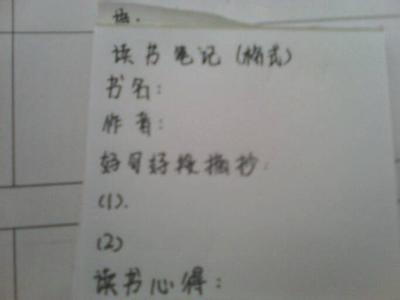 读书笔记(格式)
书名:
作者:
好句好段摘抄:
(1).
(2)
读书心得: